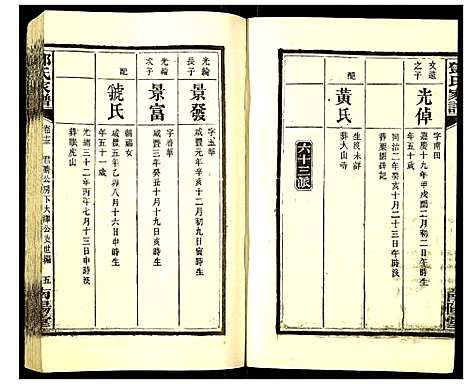 鄧氏家譜
文遠之子
光倬
字南田
嘉慶十九年甲戌閏二月初二日午時生
同治二年癸亥十月二十三日午時歿
年五十歲
葬
配
黃氏
生歿未詳
葬大山寺
六十三派
南陽堂
光綸長子
景發
字玉華
咸豐元年辛亥十二月初九日寅時生
光綸次子
景富
字春華
咸豐三年癸丑十月十九日亥時生
配
虢氏
咸豐五年乙卯八月十六日申時生
光緒三十二年丙午七月十三日申時歿
葬
虎山
鄧氏家譜
卷十三
君勝公房下大澤公支世編
五
南陽堂